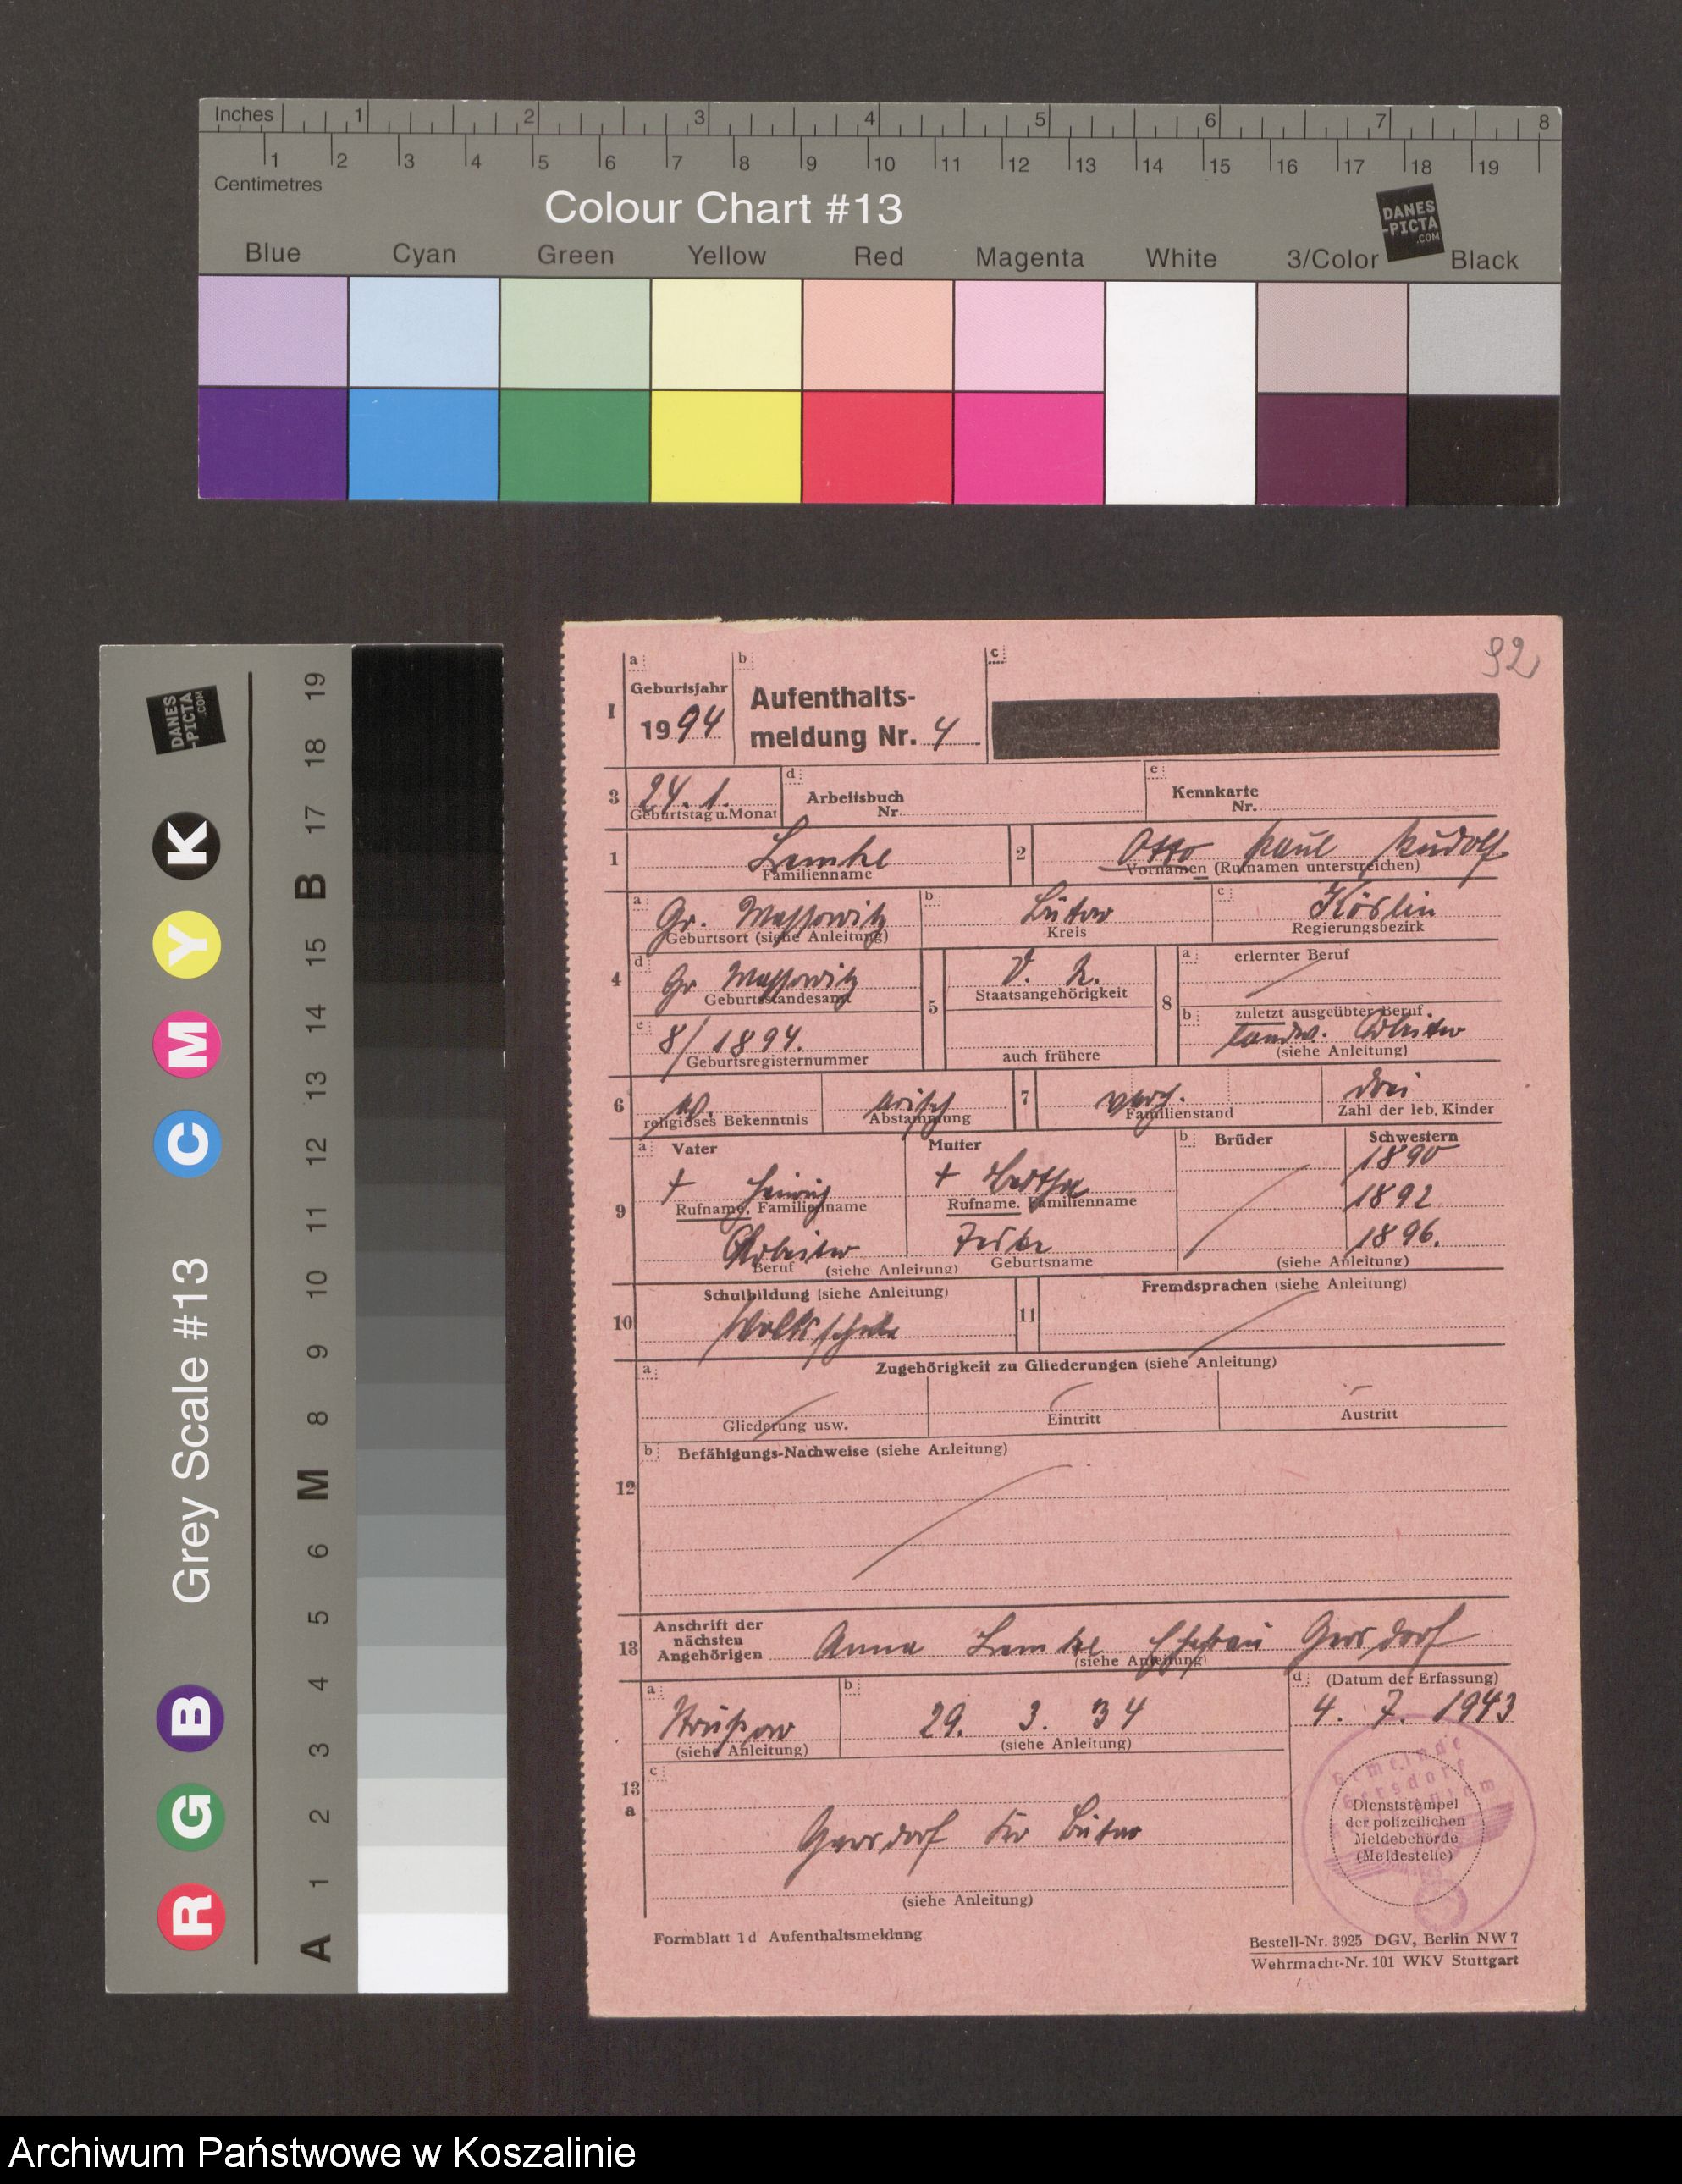 Inches 1 2 3 4 5 6 7 8
1 2 3 4 5 6 7 8 9 10 11 12 13 14 15 16 17 18 19
Centimetres
Colour Chart #13
DANES
-PICTA
.COM
Blue Cyan Green Yellow Red Magenta White 3/Color Black
DANES
-PICTA
.COM
K Y M C B G R
Grey Scale #13
19 18 17 B 15 14 13 12 11 10 9 8 M 6 5 4 3 2 1 A
92
1 a b c
Geburtsjahr
1994
Aufenthalts-
meldung Nr. 4
3 24. 1.
Geburtstag u. Monat
d Arbeitsbuch
Nr.
e Kennkarte
Nr.
1 Lemke
Familienname
2 Otto Paul Rudolf
Vornamen (Rufnamen unterstreichen)
4
a Gr. Massowitz
Geburtsort (siehe Anleitung)
b Bütow
Kreis
c Köslin
Regierungsbezirk
d Gr Massowitz
Geburtsstandesamt
e 8/1894.
Geburtsregisternummer
5
Staatsangehörigkeit
auch frühere
8
a erlernter Beruf
b zuletzt ausgeübter Beruf
landw. Arbeiter
(siehe Anleitung)
6
religiöses Bekenntnis
arisch
Abstammung
7 verh.
Familienstand
drei
Zahl der leb. Kinder
9
a Vater
† Heinrich
Rufname, Familienname
Arbeiter
Beruf (siehe Anleitung)
Mutter
† Bertha
Rufname. Familienname
Geburtsname
b Brüder
Schwestern
1890
1892
1896.
(siehe Anleitung)
10 Schulbildung (siehe Anleitung)
Volksschule
11 Fremdsprachen (siehe Anleitung)
12
a Zugehörigkeit zu Gliederungen (siehe Anleitung)
Gliederung usw. Eintritt Austritt
b Befähigungs-Nachweise (siehe Anleitung)
13 Anschrift der
nächsten
Angehörigen
Anna Lemke Ehefrau Gersdorf
(siehe Anleitung)
13
a
a
(siehe Anleitung)
b 29. 3. 34
(siehe Anleitung)
d (Datum der Erfassung)
4. 7. 1943
c
Gersdorf Kr Bütow
(siehe Anleitung)
Gemeinde
Gersdorf
Dienststempel
der polizeilichen
Meldebehörde
(Meldestelle)
Formblatt 1d Aufenthaltsmeldung
Bestell-Nr. 3925 DGV, Berlin NW 7
Wehrmacht-Nr. 101 WKV Stuttgart
Archiwum Państwowe w Koszalinie